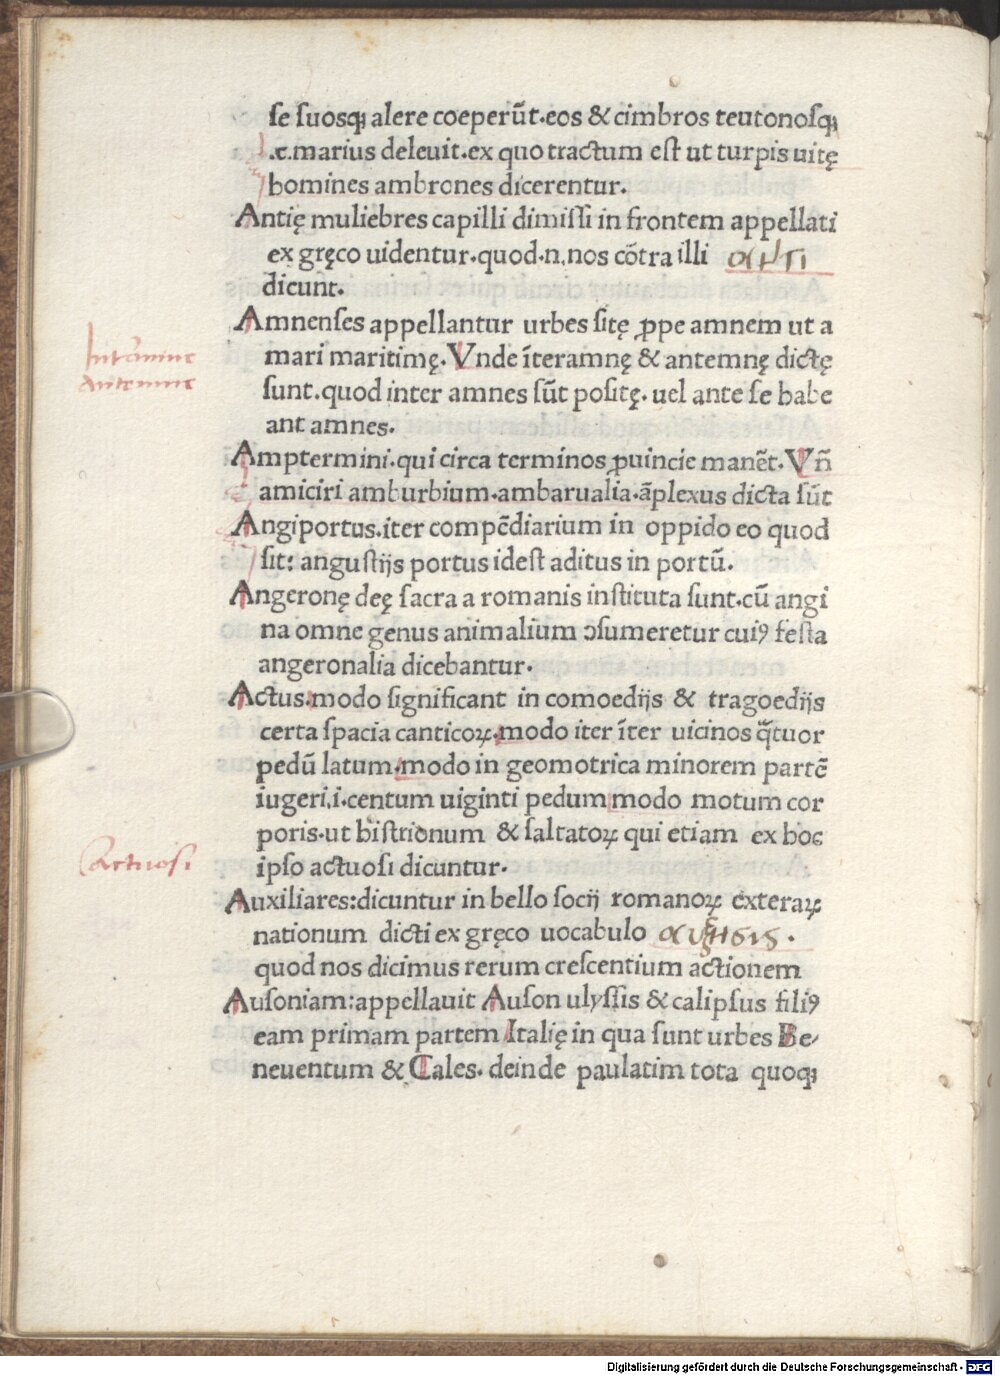 ſe ſuosqꝫ alere coeperūt.eos & cimbros teutonoſqꝫ
.c.marius deleuit.ex quo tractum eſt ut turpis uitę
homines ambrones dicerentur.
Antię muliebres capilli dimiſſi in frontem appellati
ex gręco uidentur.quod.n.nos cōtra illi αντι
dicunt.
Amnenſes appellantur urbes ſitę ꝓpe amnem ut a
mari maritimę. Vnde īteramnę & antemnę dictę
ſunt.quod inter amnes ſūt poſitę. uel ante ſe habe
ant amnes.
Amptermini.qui circa terminos ꝓuincie manēt. Vn̄
amiciri amburbium.ambarualia.āplexus dicta ſūt
Angiportus.iter compēdiarium in oppido eo quod
ſit: anguſtijs portus ideſt aditus in portū.
Angeronę deę ſacra a romanis inſtituta ſunt.cū angi
na omne genus animalium ↄſumeretur cuiꝰ feſta
angeronalia dicebantur.
Actus.modo ſignificant in comoedijs & tragoedijs
certa ſpacia canticoꝝ.modo iter īter uicinos q̄tuor
pedū latum.modo in geomotrica minorem partē
iugeri.i.centum uiginti pedum modo motum cor
poris.ut hiſtrionum & ſaltatoꝝ qui etiam ex hoc
ipſo actuoſi dicuntur.
Auxiliares:dicuntur in bello ſocij romanoꝝ exteraꝝ
nationum dicti ex gręco uocabulo αυξησις.
quod nos dicimus rerum creſcentium actionem
Auſoniam:appellauit Auſon ulyſſis & calipſus filiꝰ
eam primam partem Italię in qua ſunt urbes Be⸗
neuentum & Cales. deinde paulatim tota quoqꝫ
Antemne
Actuosi
Digitalisierung gefördert durch die Deutsche Forschungsgemeinschaft - DFG